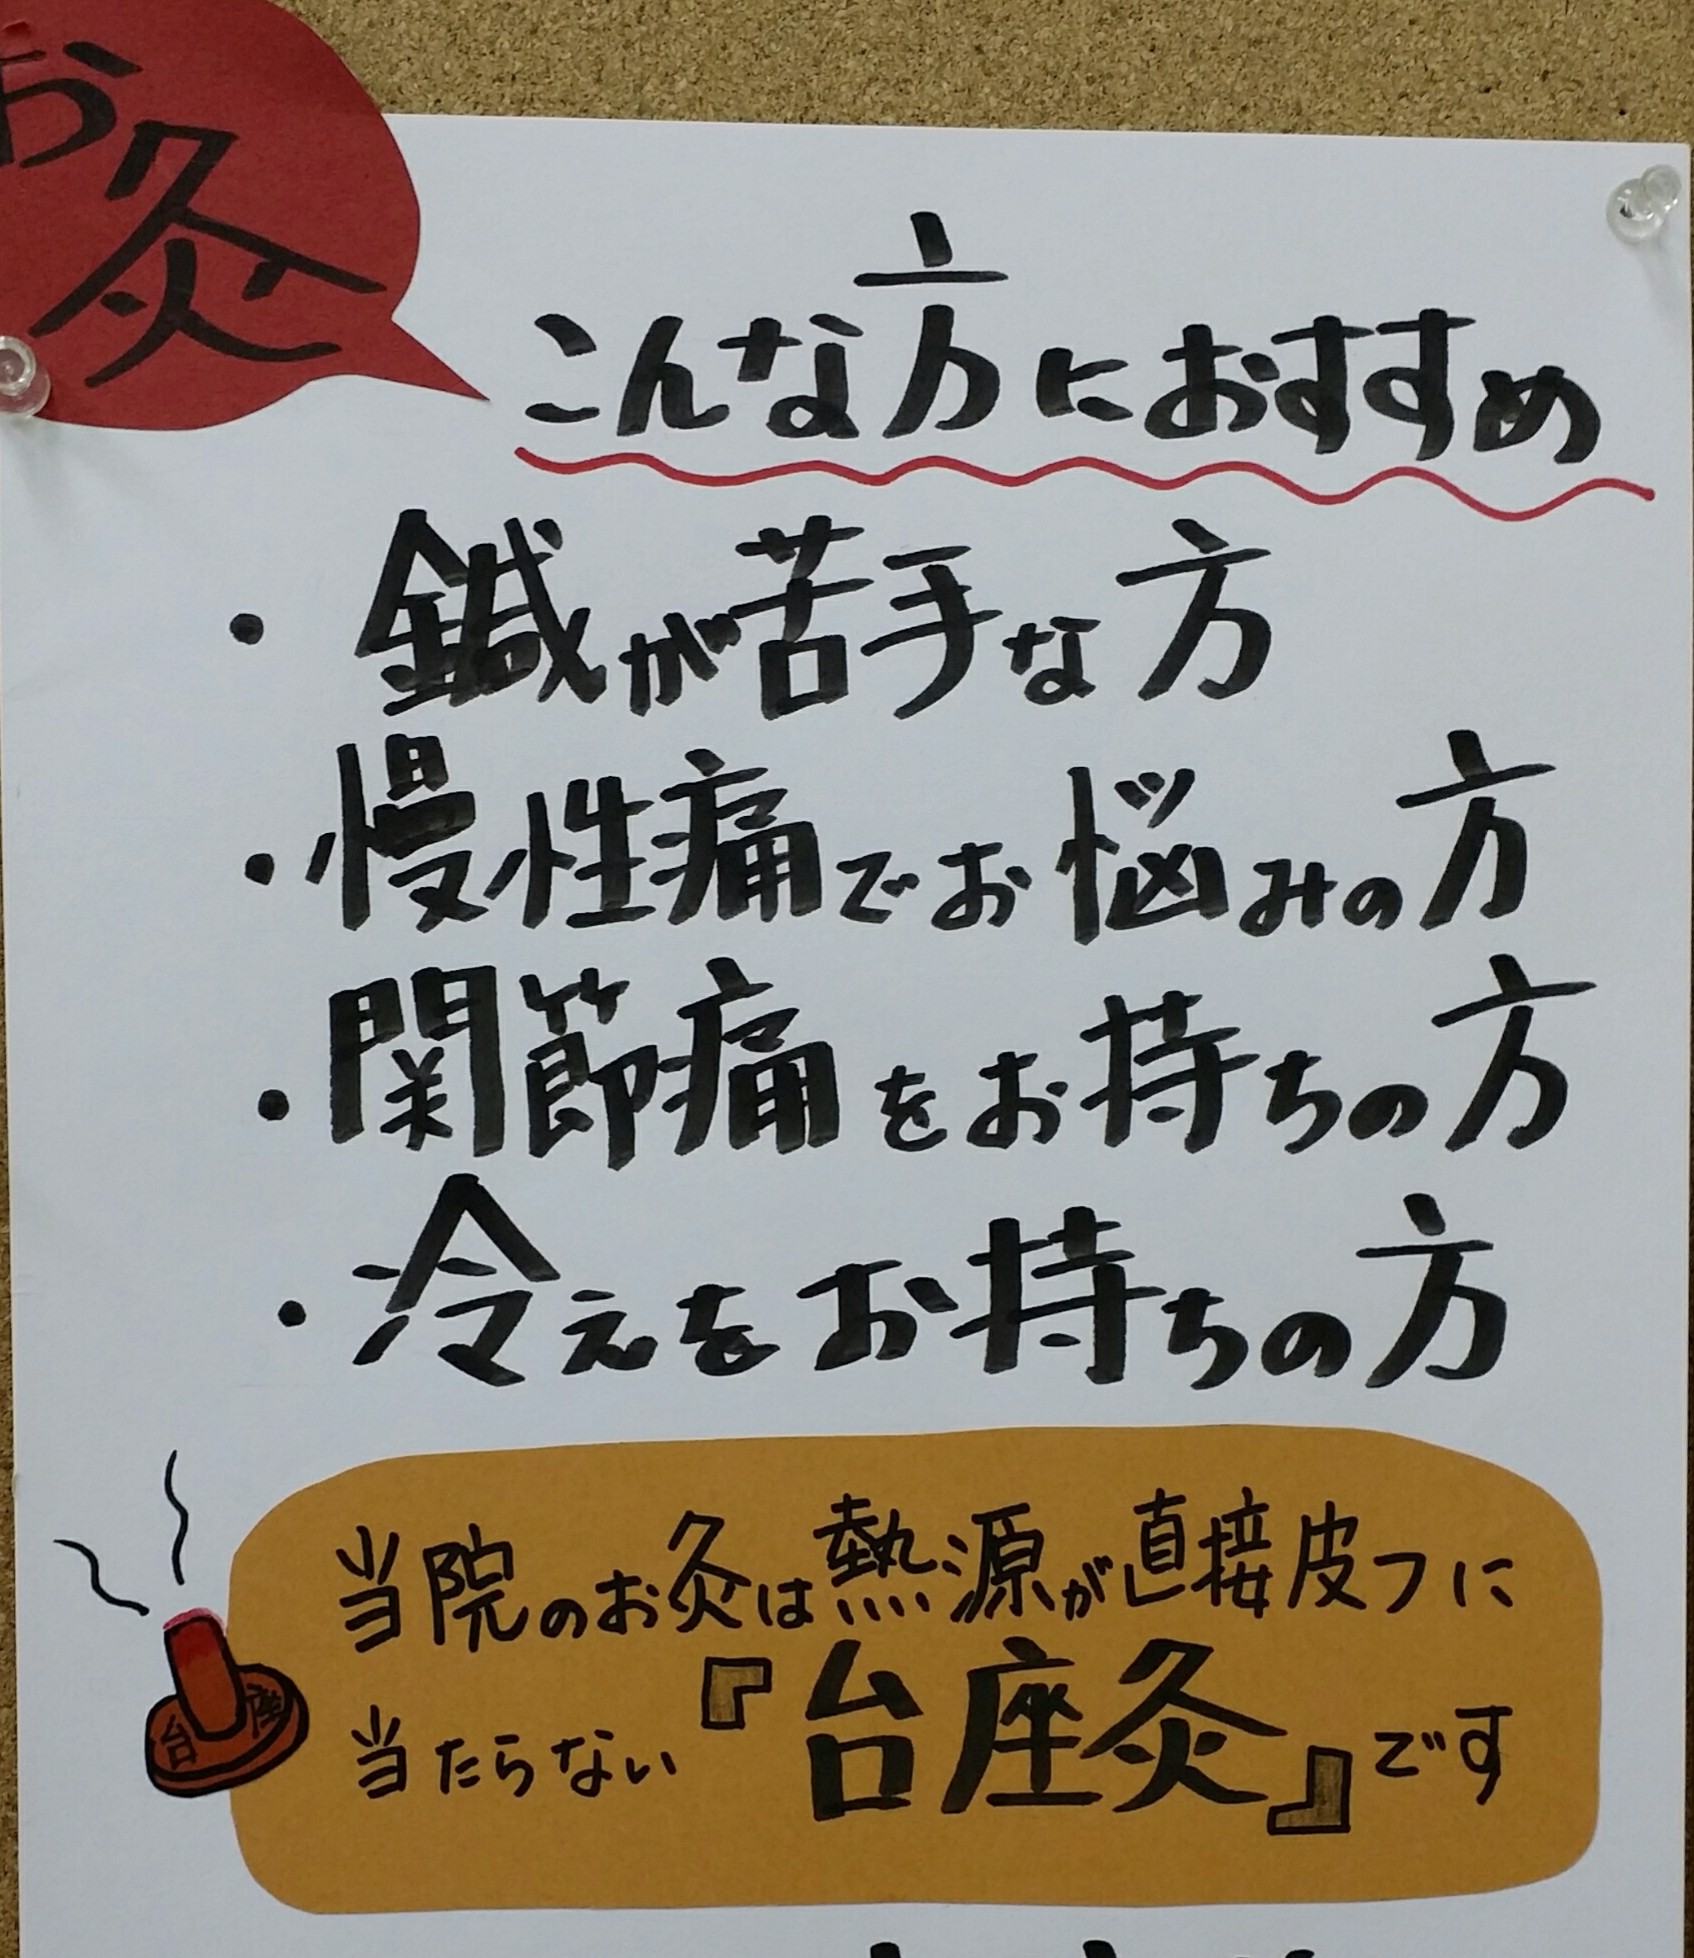 お灸
こんな方におすすめ
・鍼が苦手な方
・慢性痛でお悩みの方
・関節痛をお持ちの方
・冷えをお持ちの方
当院のお灸は熱源が直接皮フに
当たらない『台座灸』です
台座